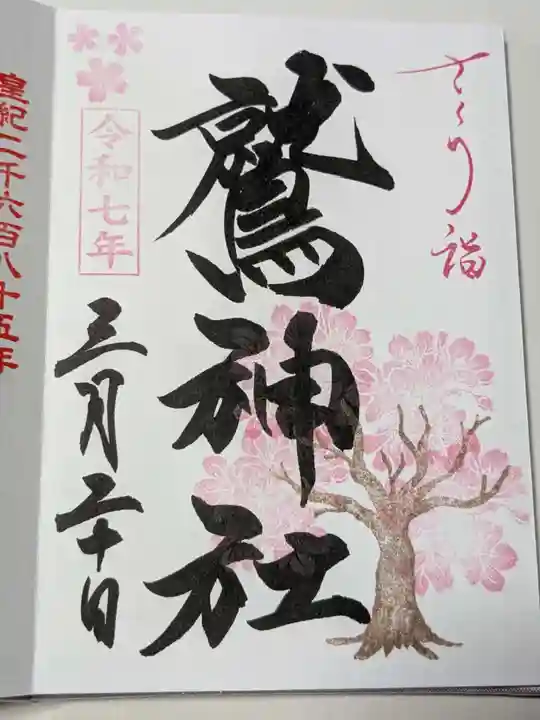 さくら詣
鷲神社
令和七年
三月二十日
皇紀二千六百八十五年